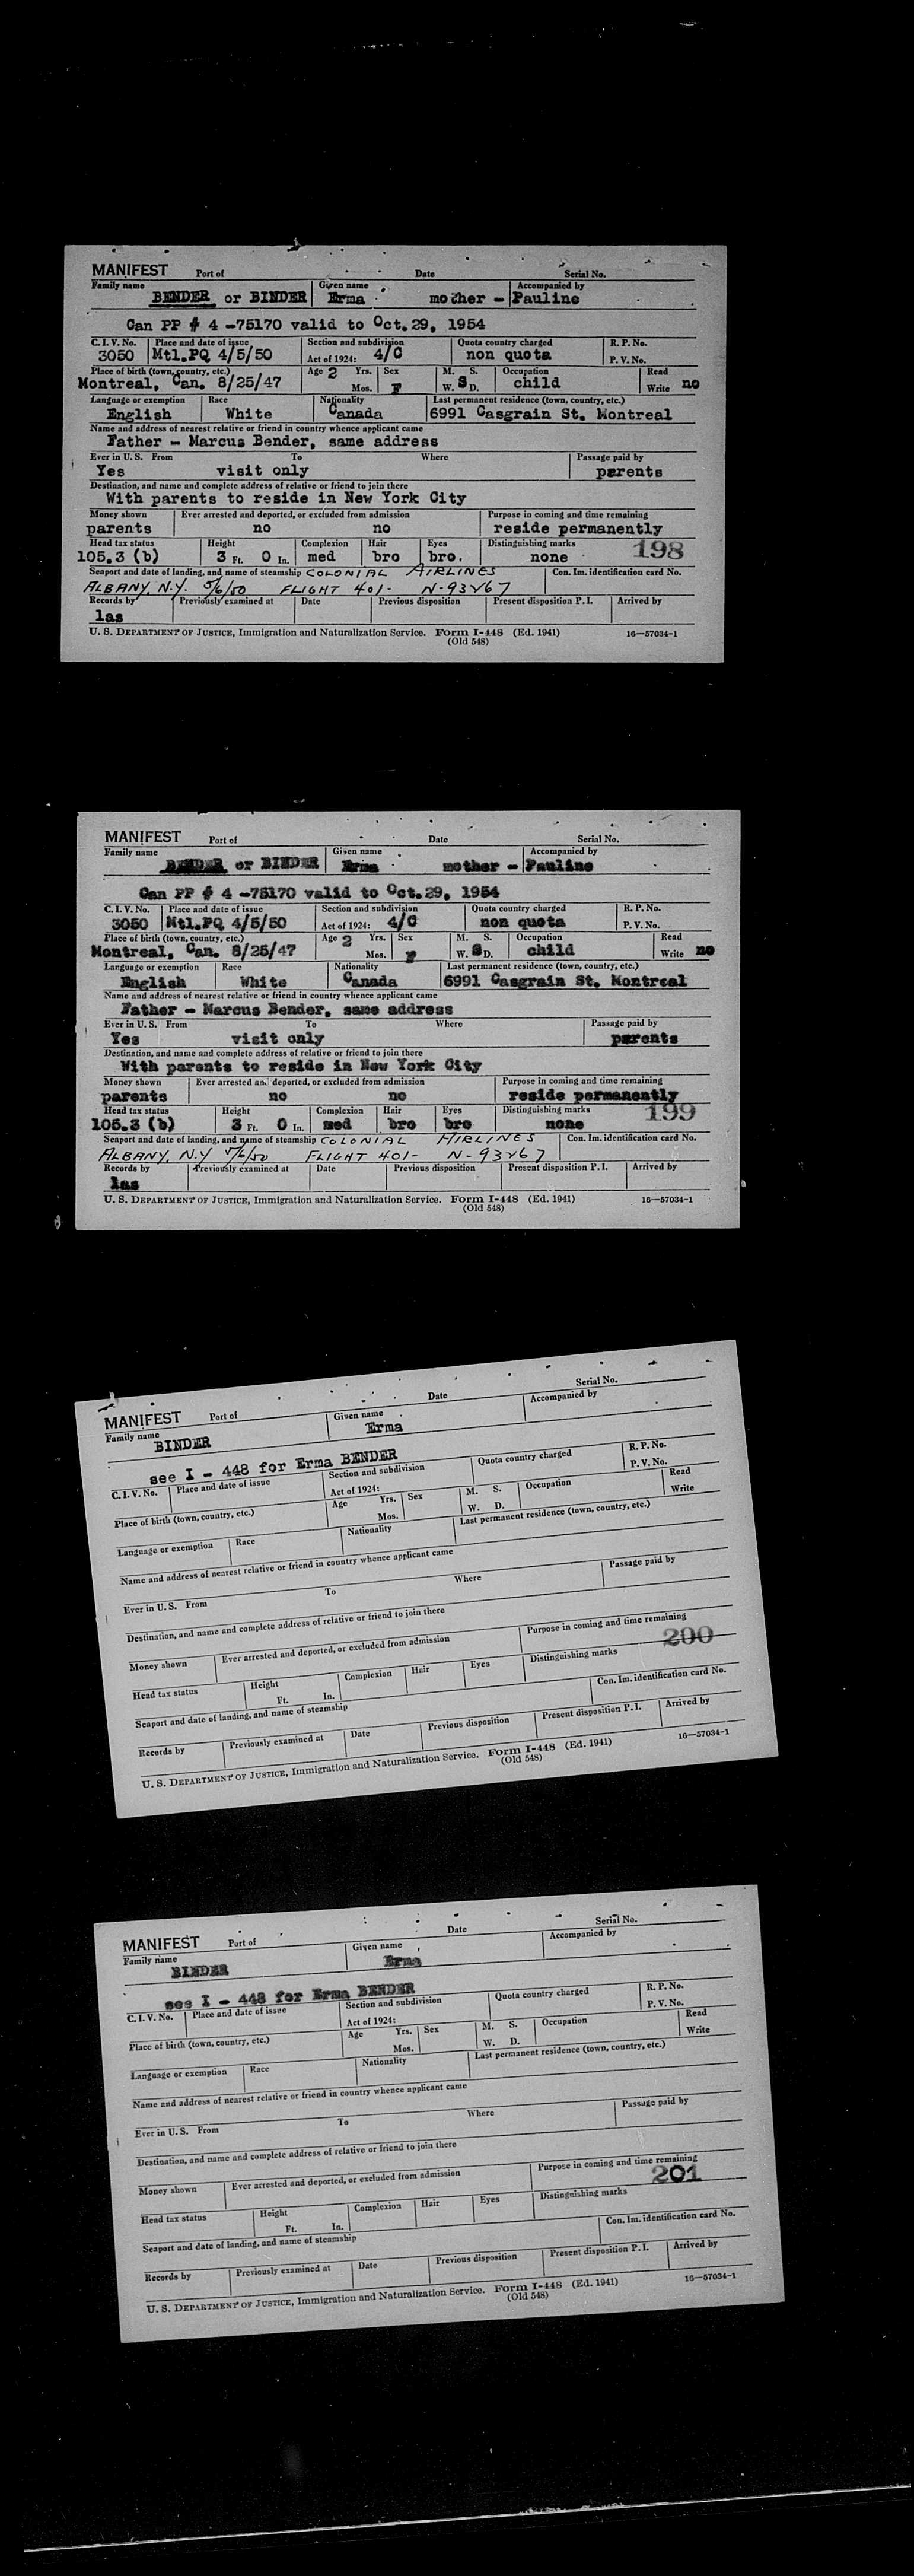 MANIFEST Port of Date Serial No.
Family name Given name Accompanied by
BENDER or BINDER Erma mother - Pauline
Can PP # 4 -75170 valid to Oct.29, 1954
C. I. V. No. Place and date of issue Section and subdivision Quota country charged R. P. No.
3050 Mtl.PQ 4/5/50 Act of 1924: 4/C non quota P. V. No.
Place of birth (town, country, etc.) Age 2 Yrs. Sex M. S. Occupation Read
Montreal, Can. 8/25/47 Mos. F W. S D. child Write no
Language or exemption Race Nationality Last permanent residence (town, country, etc.)
English White Canada 6991 Casgrain St. Montreal
Name and address of nearest relative or friend in country whence applicant came
Father - Marcus Bender, same address
Ever in U. S. From To Where Passage paid by
Yes visit only parents
Destination, and name and complete address of relative or friend to join there
With parents to reside in New York City
Money shown Ever arrested and deported, or excluded from admission Purpose in coming and time remaining
parents no no reside permanently
Head tax status Height Complexion Hair Eyes Distinguishing marks 198
105.3 (b) 3 Ft. 0 In. med bro bro. none
Seaport and date of landing, and name of steamship COLONIAL AIRLINES Con. Im. identification card No.
ALBANY, N.Y. 5/6/50 FLIGHT 401- N-93467
Records by Previously examined at Date Previous disposition Present disposition P. I. Arrived by
las
U. S. DEPARTMENT OF JUSTICE, Immigration and Naturalization Service. Form I-448 (Ed. 1941) 16—57034-1
(Old 548)
MANIFEST Port of Date Serial No.
Family name Given name Accompanied by
BENDER or BINDER Erma mother - Pauline
Can PP # 4 -75170 valid to Oct.29, 1954
C. I. V. No. Place and date of issue Section and subdivision Quota country charged R. P. No.
3050 Mtl.PQ 4/5/50 Act of 1924: 4/C non quota P. V. No.
Place of birth (town, country, etc.) Age 2 Yrs. Sex M. S. Occupation Read
Montreal, Can. 8/25/47 Mos. F W. S D. child Write no
Language or exemption Race Nationality Last permanent residence (town, country, etc.)
English White Canada 6991 Casgrain St. Montreal
Name and address of nearest relative or friend in country whence applicant came
Father - Marcus Bender, same address
Ever in U. S. From To Where Passage paid by
Yes visit only parents
Destination, and name and complete address of relative or friend to join there
With parents to reside in New York City
Money shown Ever arrested and deported, or excluded from admission Purpose in coming and time remaining
parents no no reside permanently
Head tax status Height Complexion Hair Eyes Distinguishing marks 199
105.3 (b) 3 Ft. 0 In. med bro bro none
Seaport and date of landing, and name of steamship COLONIAL AIRLINES Con. Im. identification card No.
ALBANY, N.Y 5/6/50 FLIGHT 401- N-93467
Records by Previously examined at Date Previous disposition Present disposition P. I. Arrived by
las
U. S. DEPARTMENT OF JUSTICE, Immigration and Naturalization Service. Form I-448 (Ed. 1941) 16—57034-1
(Old 548)
MANIFEST Port of Date Serial No.
Family name Given name Accompanied by
BINDER Erma
see I - 448 for Erma BENDER
C. I. V. No. Place and date of issue Section and subdivision Quota country charged R. P. No.
Act of 1924: P. V. No.
Place of birth (town, country, etc.) Age Yrs. Sex M. S. Occupation Read
Mos. W. D. Write
Language or exemption Race Nationality Last permanent residence (town, country, etc.)
Name and address of nearest relative or friend in country whence applicant came
Ever in U. S. From To Where Passage paid by
Destination, and name and complete address of relative or friend to join there
Money shown Ever arrested and deported, or excluded from admission Purpose in coming and time remaining
200
Head tax status Height Complexion Hair Eyes Distinguishing marks
Ft. In.
Seaport and date of landing, and name of steamship Con. Im. identification card No.
Records by Previously examined at Date Previous disposition Present disposition P. I. Arrived by
U. S. DEPARTMENT OF JUSTICE, Immigration and Naturalization Service. Form I-448 (Ed. 1941) 16—57034-1
(Old 548)
MANIFEST Port of Date Serial No.
Family name Given name Accompanied by
BINDER Erma
see I - 448 for Erma BENDER
C. I. V. No. Place and date of issue Section and subdivision Quota country charged R. P. No.
Act of 1924: P. V. No.
Place of birth (town, country, etc.) Age Yrs. Sex M. S. Occupation Read
Mos. W. D. Write
Language or exemption Race Nationality Last permanent residence (town, country, etc.)
Name and address of nearest relative or friend in country whence applicant came
Ever in U. S. From To Where Passage paid by
Destination, and name and complete address of relative or friend to join there
Money shown Ever arrested and deported, or excluded from admission Purpose in coming and time remaining
201
Head tax status Height Complexion Hair Eyes Distinguishing marks
Ft. In.
Seaport and date of landing, and name of steamship Con. Im. identification card No.
Records by Previously examined at Date Previous disposition Present disposition P. I. Arrived by
U. S. DEPARTMENT OF JUSTICE, Immigration and Naturalization Service. Form I-448 (Ed. 1941) 16—57034-1
(Old 548)